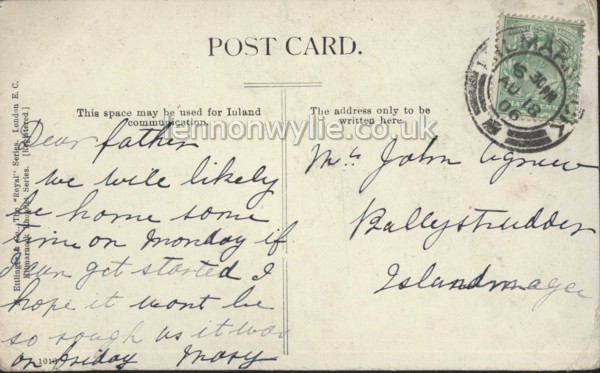 POST CARD.
This space may be used for Inland
communication.
The address only to be
written here.
lennonwylie.co.uk
Ettlinger & Co., The "Royal" Series, London E.C.
Kilmarnock Series. [Registered.]
Dear father
we will likely
be home some
time on Monday if
I can get started I
hope it wont be
so rough as it was
on Friday Mary
Mr John Agnew
Ballystrudder
Islandmagee
KILMARNOCK
AU 18
06